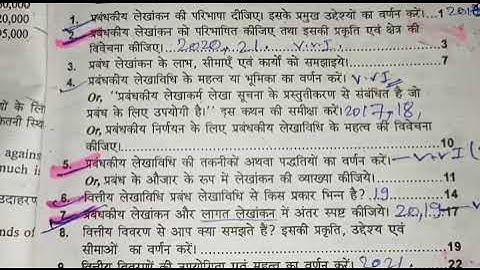 0,000
,000
95,000
1. प्रबंधकीय लेखांकन की परिभाषा दीजिए। इसके प्रमुख उद्देश्यों का वर्णन करें।...1
2. प्रबंधकीय लेखांकन को परिभाषित कीजिए तथा इसकी प्रकृति एवं क्षेत्र की
विवेचना कीजिए। 2020, 21. v.v.I 3
3. प्रबंध लेखांकन के लाभ, सीमाएँ एवं कार्यों को समझाइये। 7
4. प्रबंधकीय लेखाविधि के महत्व या भूमिका का वर्णन करें। v.v.I
Or, "प्रबंधकीय लेखाकर्म लेखा सूचना के प्रस्तुतीकरण से संबंधित है जो
प्रबंध के लिए उपयोगी है।" इस कथन की समीक्षा करें। 2017, 18,
Or, प्रबंधकीय निर्णयन के लिए प्रबंधकीय लेखाविधि के महत्व की विवेचना
कीजिए। 10
5. प्रबंधकीय लेखाविधि की तकनीकों अथवा पद्धतियों का वर्णन करें।
Or, प्रबंध के औजार के रूप में लेखांकन की व्याख्या कीजिये। 11
6. वित्तीय लेखाविधि प्रबंध लेखाविधि से किस प्रकार भिन्न है? 19 14
7. प्रबंधकीय लेखांकन और लागत लेखांकन में अंतर स्पष्ट कीजिये। 20, 19 17
8. वित्तीय विवरण से आप क्या समझते हैं? इसकी प्रकृति, उद्देश्य एवं
सीमाओं का वर्णन करें। 19
9. वित्तीय विवरणों की उपयोगिता एवं महत्व का वर्णन करें। 2021. 22
ों के लि
केतनी स्थि
agains
much is
उदाहरण
nds of